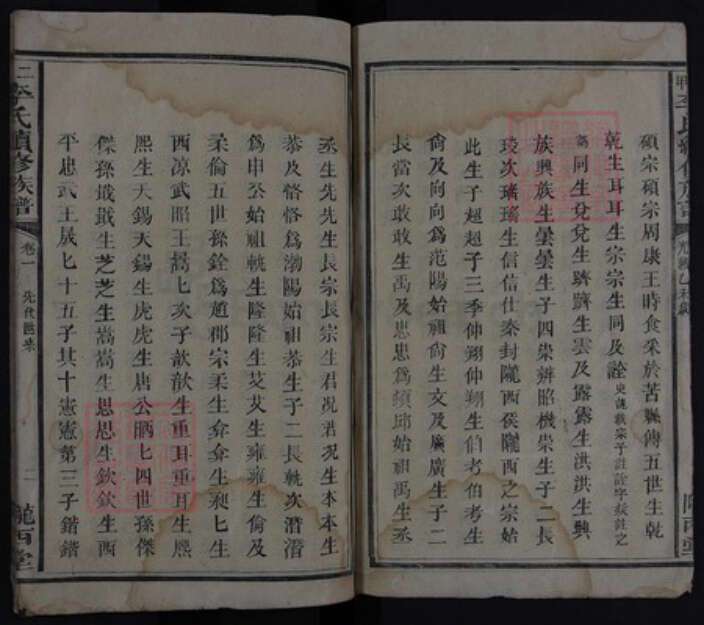 碩宗碩宗周康王時食采於苦縣傳五世生乾
乾生耳耳生宗宗生同及詮史記載宗子註註字疑註之
同生兌兌生躋躋生雲及露露生洪洪生興
族興族生曇曇生子四崇辨昭機崇生子二長
次璠璠生信信仕秦封隴西侯隴西之宗始
此生子超超子三季仲翔仲翔生伯考伯考生
尙及向向爲范陽始祖尙生文及廣廣生子二
長當次敢敢生禹及忠忠爲頓邱始祖禹生丞
丞生先先生長宗長宗生君况君况生本本生
恭及恪恪爲渤陽始祖恭生子二長軌次潛潛
爲申公始祖軌生隆隆生艾艾生雍雍生倫及
柔倫五世孫銓爲趙郡宗柔生弇弇生昶七生
西凉武昭王暠七次子歆歆生重耳重耳生熙
熙生天錫天錫生虎虎生唐公昞七四世孫傑
傑孫戢戢生芝芝生嵩嵩生思思生欽欽生西
平忠武王晟七十五子其十憲憲第三子鍇鍇
李氏續修族譜
卷一
先代世系
隴西堂